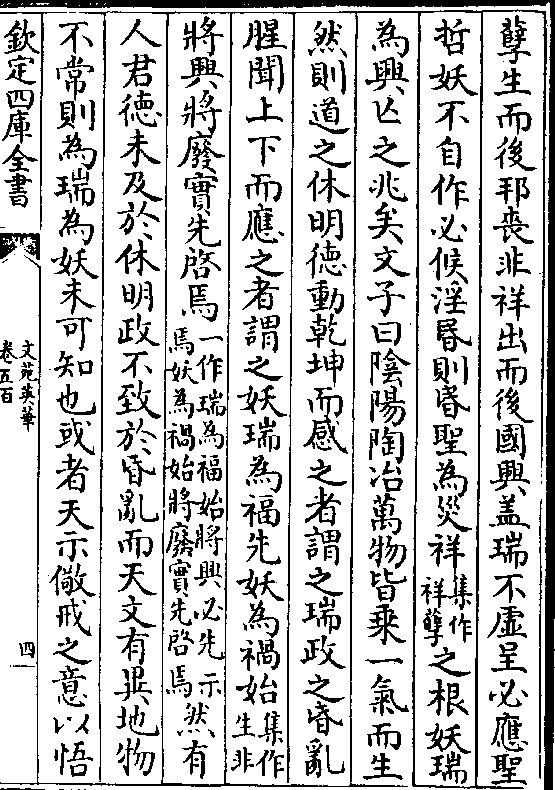 孽生而後邦喪非祥出而後國興盖瑞不虚呈必應聖
哲妖不自作必候淫昬則昬聖為災祥集作祥孽之根妖瑞
為興亡之兆矣文子曰陰陽陶冶萬物皆乗一氣而生
然則道之休明德動乾坤而感之者謂之瑞政之昬亂
腥聞上下而應之者謂之妖瑞為福先妖為禍始集作生非
將興將廢實先啓焉一作瑞為福始將興必先示焉妖為禍始將廢實先啓焉然有
人君德未及於休明政不致於昏亂而天文有異地物
不常則為瑞為妖未可知也或者天示儆戒之意以悟
欽定四庫全書
文苑英華
卷五百
四